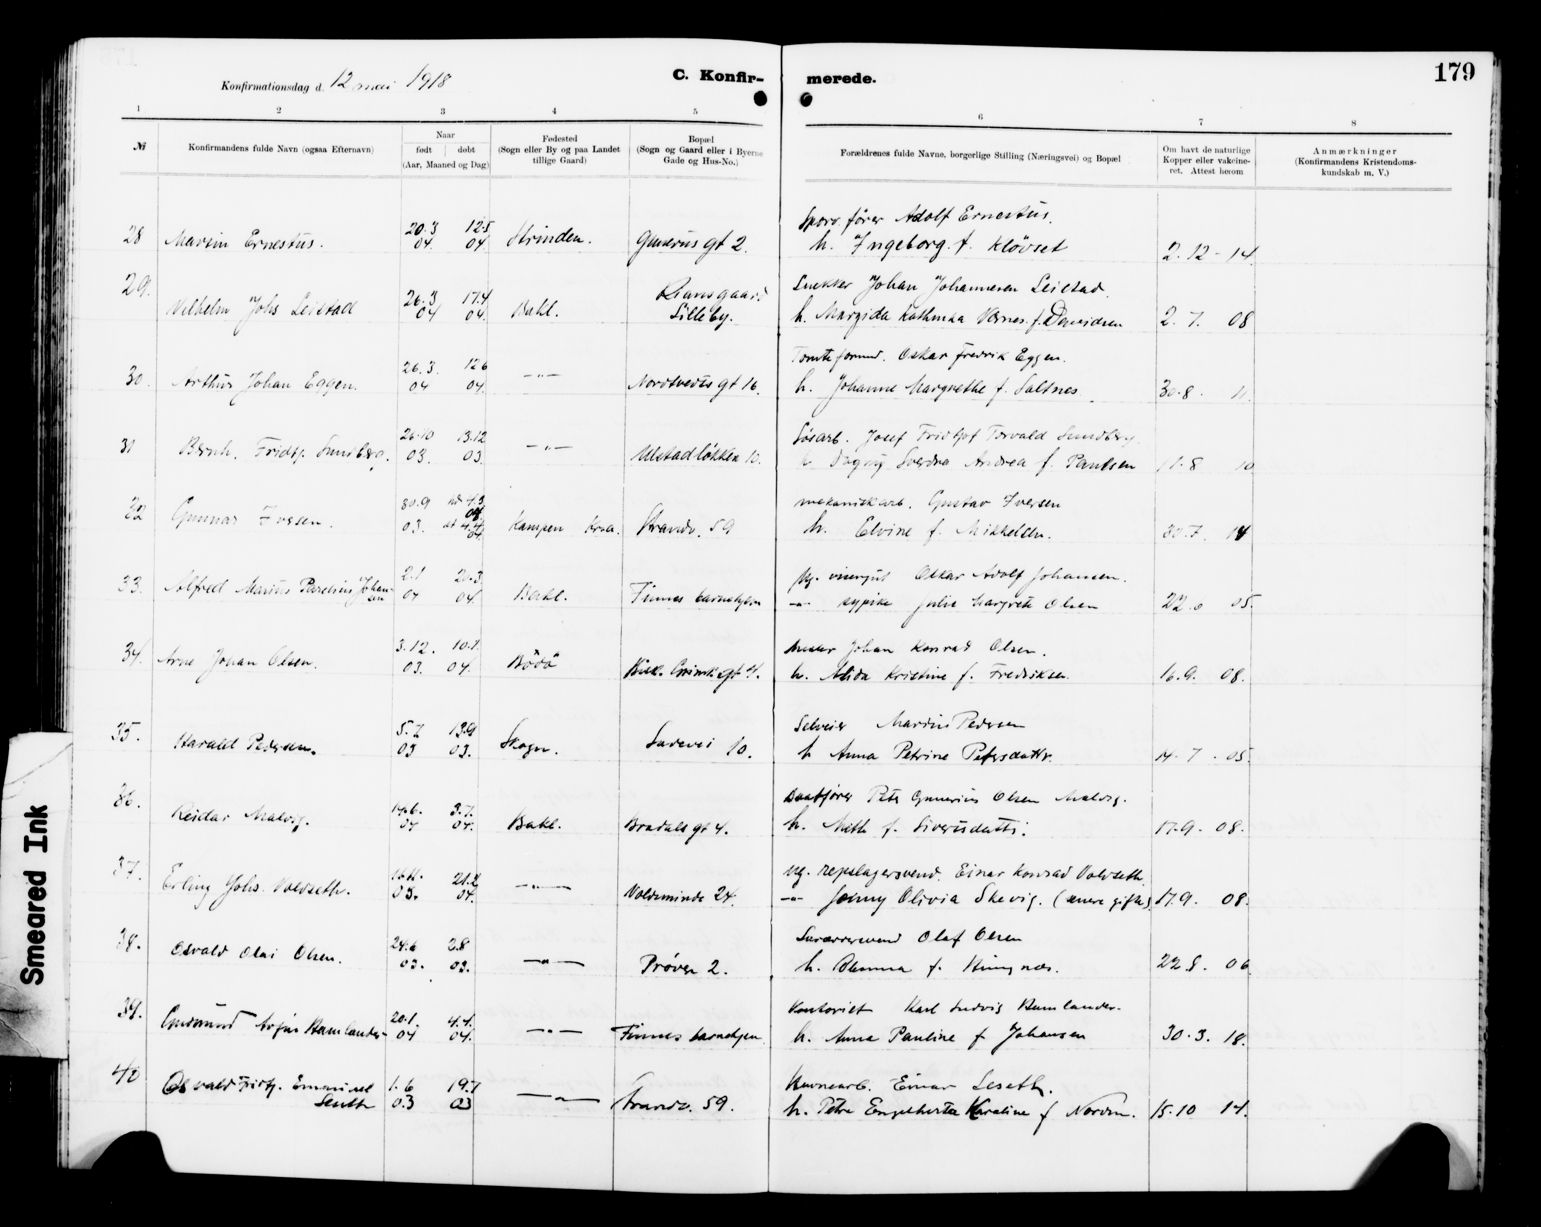 179
Konfirmationsdag d. 12 mai 1918
C. Konfir- merede.
1 2 3 4 5 6 7 8
№ Konfirmandens fulde Navn (ogsaa Efternavn)
Naar
født døbt
(Aar, Maaned og Dag)
Fødested
(Sogn eller By og paa Landet
tillige Gaard)
Bopæl
(Sogn og Gaard eller i Byerne
Gade og Hus-No.)
Forældrenes fulde Navne, borgerlige Stilling (Næringsvei) og Bopæl
Om havt de naturlige
Kopper eller vakcine-
ret. Attest herom
Anmærkninger
(Konfirmandens Kristendoms-
kundskab m. V.)
Sporv.fører Adolf Ernestus.
28 Marvin Ernestus. 20.3 04. 12.5 04 Strinden. Gunerus gt 2.
h. Ingeborg f. Kløvset 2. 12 - 14.
29. Snekker Johan Johannesen Leistad
Vilhelm Johs Leistad 26.3 04 17.4 04. Bakl. Lilleby.
h. Margida Kathinka Værnes f. Davidsen 2. 7. 08
Tomteformd. Oskar Fredrik Eggen.
30. Arthur Johan Eggen. 26.3. 04 12 6 04. —"— Nordtvedts gt 16.
h. Johanne Margrethe f. Saltnes. 30.8. 11.
Josef Fridtjof Torvald Sundberg.
31 Bernh. Fridtj. Sundberg. 26.10 03. 13.12 03. —"— Ulstadløkken 10.
h. Dagny Sverdna Andrea f. Paulsen 17.8 10
mekaniskarb. Gustav Iversen
32 Gunnar Iversen. 30.9 03. Kampen Kria. Strandv. 59
h. Elvine f. Mikkelsen. 30.7. 14
Oskar Adolf Johansen.
33. Alfred Marius Parelius Johan-
sen 2.1 04 20.3. 04. Bakl. Finnes barnehjem
—"— sypike Julie Margrete Olsen 22.6 05.
Johan Konrad Olsen.
34. Arne Johan Olsen. 3.12. 03. 10.1. 04. Bodö gt 4.
h. Alida Kristine f. Fredriksen. 16.9. 08.
Selveier Martin Pedersen
35. Harald Pedersen. 5.7 03 13.9 03. Skogn. Ladevei 10.
h Anna Petrine Petersdattr. 14. 7. 05.
Baatfører Peter Gunerius Olsen Malvig.
36. Reidar Malvig. 14.6. 04 3.7. 04. Bakl. gt 4.
h. Meth f. Sivertsdattr. 17.9. 08.
ug. repslagersvend. Einar Konrad Voldseth
37. Erling Johs. Voldseth. 03. 21.2 04. —"— Voldsminde 24.
—"— Jenny Olivia Skevig. (senere gifte) 17.9. 08.
Olaf Olsen
38. Osvald Olai Olsen. 24.6 03. 2.8 03. —"— Prøven 2.
22 8. 06
Kontorist Karl Ludvig Hamlander.
39. Hamlander 20.1. 04 4.4. 04. —"— Finnes barnehjem
h. Anna Pauline f Johansen 30.3. 18.
Havnearb. Einar Leseth.
40 Osvald Fridtj. Emanuel
Leseth 1.6 03 19.7 03 —"— Strandv. 59.
h. Petra Engelberta Karoline f Nordm. 15.10 14.
Smeared Ink